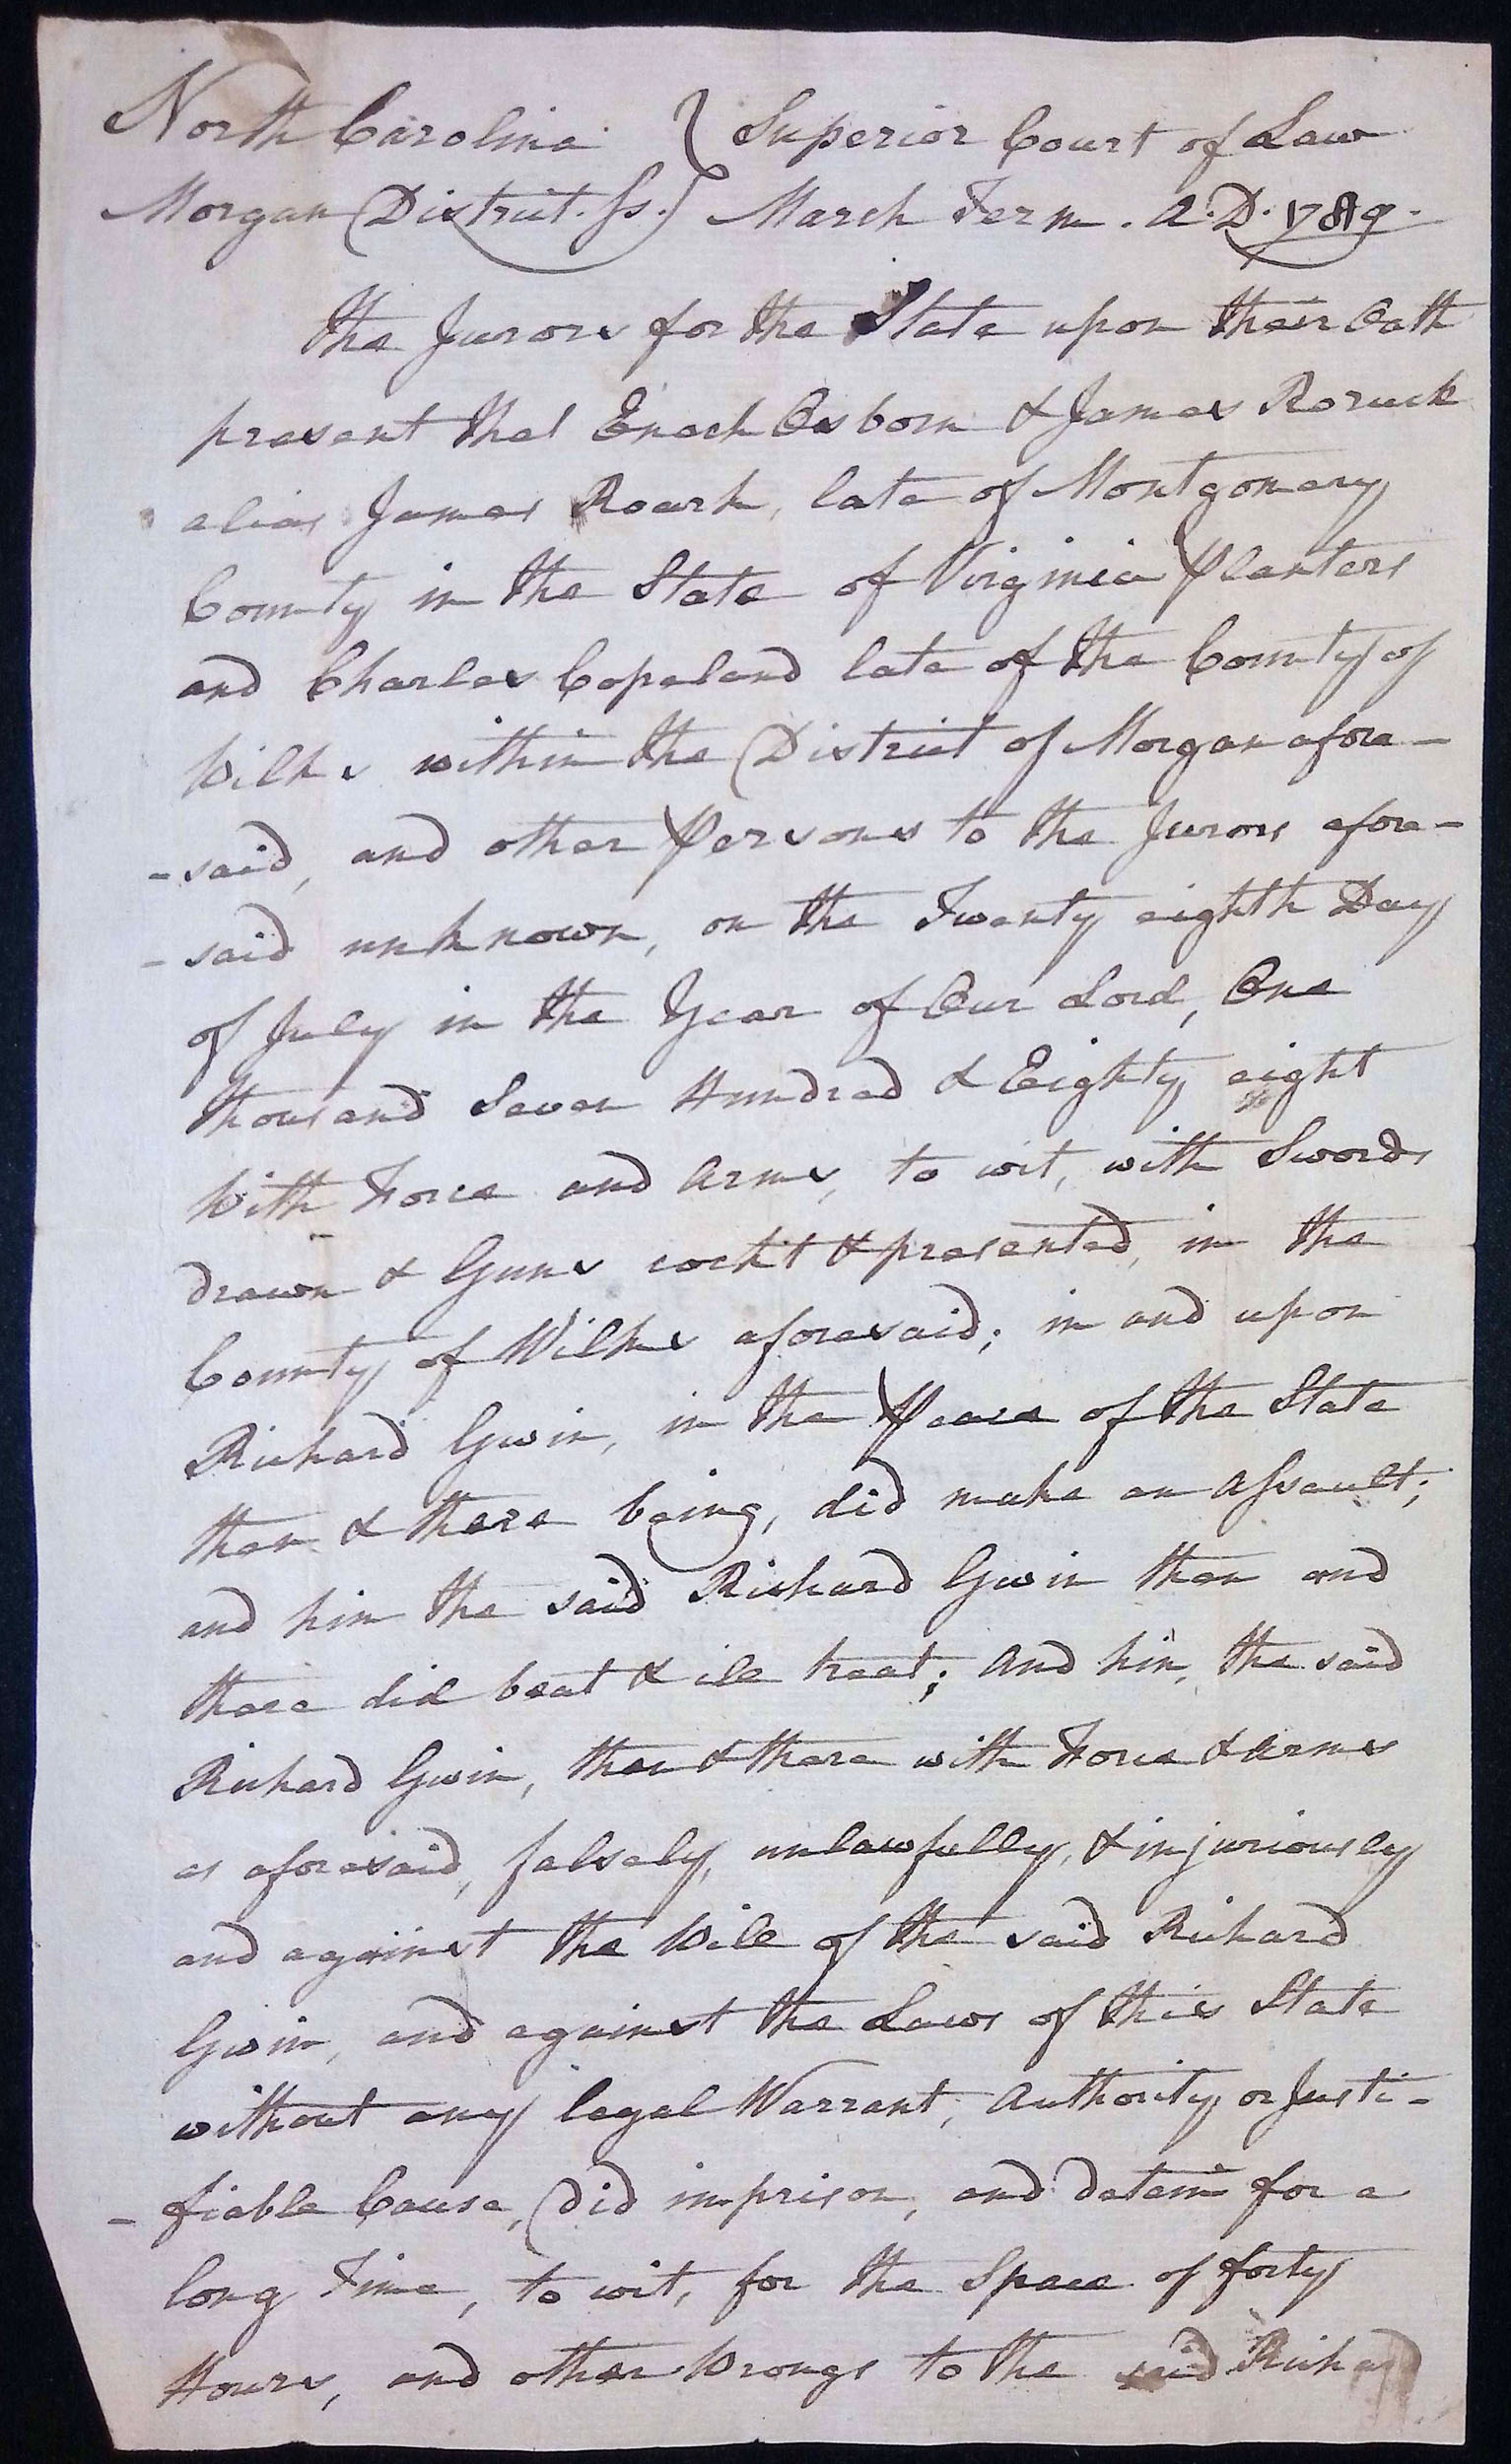 North Carolina } Superior Court of Law
Morgan District. Ss. } March Term. A.D. 1789.
The Jurors for the State upon their Oath
present that Enoch Osborn & James Roruck
alias James Roark, late of Montgomery
County in the State of Virginia Planters
and Charles Copeland late of the County of
Wilks within the District of Morgan afore-
-said, and other Persons to the Jurors afore-
-said unknown, on the Twenty eighth Day
of July in the Year of Our Lord, One
thousand Seven Hundred & Eighty eight
With Force and Arms, to wit, with Swords
drawn & Guns cockt & presented, in the
County of Wilks aforesaid; in and upon
Richard Gwin, in the Peace of the State
then & there being, did make an Assault;
and him the said Richard Gwin then and
there did beat & ill treat; And him, the said
Richard Gwin, then & there with Force & Arms
as aforesaid, falsely, unlawfully, & injuriously
and against the Will of the said Richard
Gwin, and against the Laws of this State
without any legal Warrant, Authority, or Justi-
-fiable Cause, Did imprison, and detain for a
long Time, to wit, for the Space of forty
Hours, and other Wrongs to the said Richard